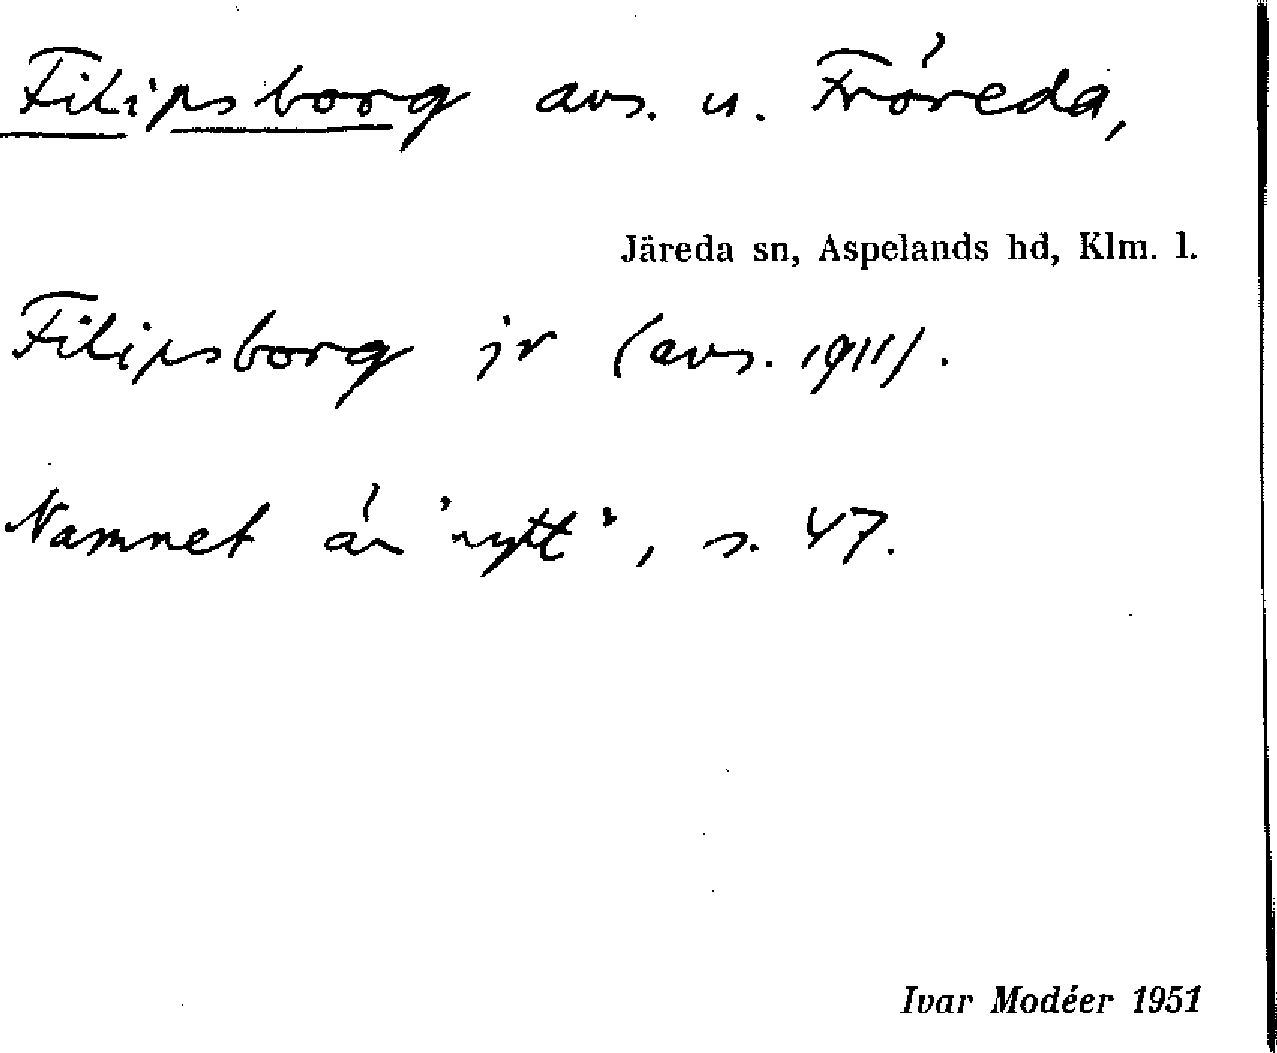 Filipsborg avs. u. Fröreda,
Järeda sn, Aspelands hd, Klm. l.
Filipsborg jr (avs. 1911).
Namnet är "nytt", s. 47.
Ivar Modéer 1951